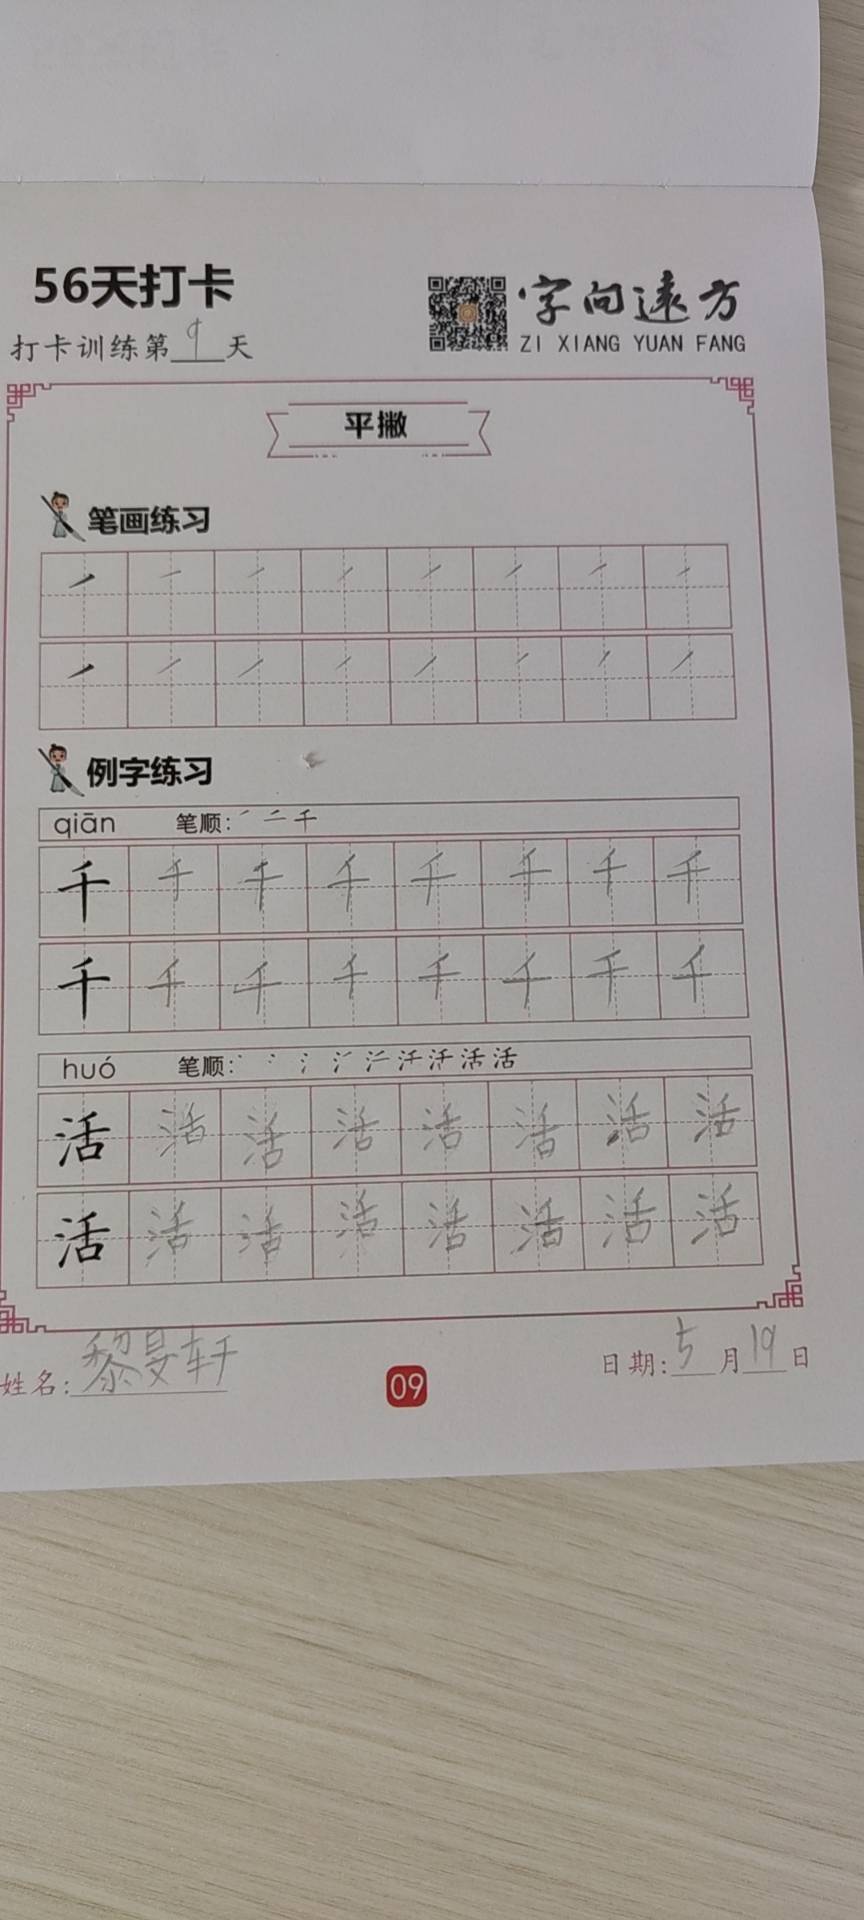 56天打卡
字向远方
ZI XIANG YUAN FANG
打卡训练第9天
平撇
笔画练习
例字练习
qiān 笔顺:
千 千 千 千 千 千 千 千
千 千 千 千 千 千 千 千
huó 笔顺:
活 活 活 活 活 活 活 活
活 活 活 活 活 活 活 活
姓名:黎晏轩
09
日期:5月19日